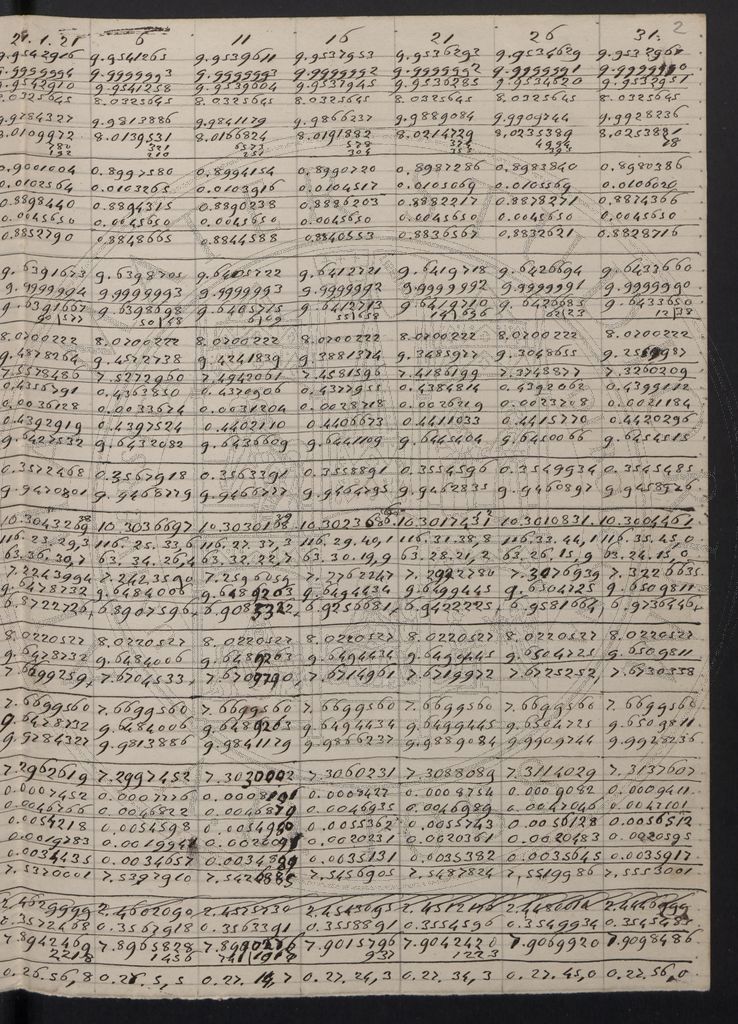 2
21. 1. 21 6 11 16 21 26 31
9.9542916 9.9541265 9.9539611 9.9537953 9.9536293 9.9534629
9.9999994 9.9999993 9.9999993 9.9999992 9.9999992 9.9999991 9.9999990
9.9542910 9.9541258 9.9539604 9.9537945 9.9536285 9.9534620
8.0325645 8.0325645 8.0325645 8.0325645 8.0325645 8.0325645 8.0325645
9.9784327 9.9813886 9.9841179 9.9866237 9.9889084 9.9909744 9.9928236
8.0109972 8.0139531 8.0166824 8.0191882 8.0214729 8.0235389 8.0253881
0.9001004 0.8997580 0.8994154 0.8990720 0.8987286 0.8983840 0.8980386
0.0102564 0.0103265 0.0103916 0.0104517 0.0105069 0.0105569 0.0106020
0.8898440 0.8894315 0.8890238 0.8886203 0.8882217 0.8878271 0.8874366
0.0045650 0.0045650 0.0045650 0.0045650 0.0045650 0.0045650 0.0045650
0.8852790 0.8848665 0.8844588 0.8840553 0.8836567 0.8832621 0.8828716
9.6391673 9.6398705 9.6405722 9.6412721 9.6419718 9.6426694 9.6433660
9.9999994 9.9999993 9.9999993 9.9999992 9.9999992 9.9999991 9.9999990
9.6391667 9.6398698 9.6405715 9.6412713 9.6419710 9.6426685 9.6433650
8.0700222 8.0700222 8.0700222 8.0700222 8.0700222 8.0700222 8.0700222
9.4878264 9.4572738 9.4241839 9.3881374 9.3485977 9.3048655
7.5578486 7.5272960 7.4942061 7.4581596 7.4186199 7.3748877 7.3260209
0.4356791 0.4363850 0.4370906 0.4377955 0.4384814 0.4392062 0.4399112
0.0036128 0.0033674 0.0031204 0.0028718 0.0026219 0.0023708 0.0021184
0.4392919 0.4397524 0.4402110 0.4406673 0.4411033 0.4415770 0.4420296
9.6427532 9.6432082 9.6436609 9.6441109 9.6445404 9.6450066 9.6454515
0.3572468 0.3567918 0.3563391 0.3558891 0.3554596 0.3549934 0.3545485
9.9470801 9.9468779 9.9466777 9.9464795 9.9462835 9.9460897 9.9458976
10.3043269 10.3036697 10.3030168 10.3023686 10.3017431 10.3010831 10.3004461
116.23.29,3 116.25.33,6 116.27.37,3 116.29.40,1 116.31.38,8 116.33.44,1 116.35.45,0
63.36.30,7 63.34.26,4 63.32.22,7 63.30.19,9 63.28.21,2 63.26.15,9 63.24.15,0
7.2243994 7.2423590 7.2596059 7.2762247 7.2922780 7.3076939 7.3226635
9.6478732 9.6484006 9.6489263 9.6494434 9.6499445 9.6504725 9.6509811
6.8722726, 6.8907596, 6.9085322, 6.9256681, 6.9422225, 6.9581664, 6.9736446,
8.0220527 8.0220527 8.0220527 8.0220527 8.0220527 8.0220527 8.0220527
9.6478732 9.6484006 9.6489263 9.6494434 9.6499445 9.6504725 9.6509811
7.6699259, 7.6704533, 7.6709790, 7.6714961 7.6719972 7.6725252, 7.6730338
7.6699560 7.6699560 7.6699560 7.6699560 7.6699560 7.6699560 7.6699560
9.6478732 9.6484006 9.6489263 9.6494434 9.6499445 9.6504725 9.6509811
9.9784327 9.9813886 9.9841179 9.9866237 9.9889084 9.9909744 9.9928236
7.2962619 7.2997452 7.3030002 7.3060231 7.3088089 7.3114029 7.3137607
0.0007452 0.0007776 0.0008101 0.0008427 0.0008754 0.0009082 0.0009411
0.0046766 0.0046822 0.0046879 0.0046935 0.0046989 0.0047046 0.0047101
0.0054218 0.0054598 0.0054980 0.0055362 0.0055743 0.0056128 0.0056512
0.0019783 0.0019941 0.0020231 0.0020361 0.0020483 0.0020595
0.0034435 0.0034657 0.0034889 0.0035131 0.0035382 0.0035645 0.0035917
7.5370001 7.5397910 7.5456905 7.5487824 7.5519986 7.5553001
2.4629999 2.4602090
0.3572468 0.3567918 0.3563391 0.3558891 0.3554596 0.3549934 0.3545485
7.8942469 7.8965828 7.9015796 7.9042420 7.9069920 7.9098486
2218 1456 937 1223
0.26.56,8 0.27.5,5 0.27.14,7 0.27.24,3 0.27.34,3 0.27.45,0 0.27.56,0